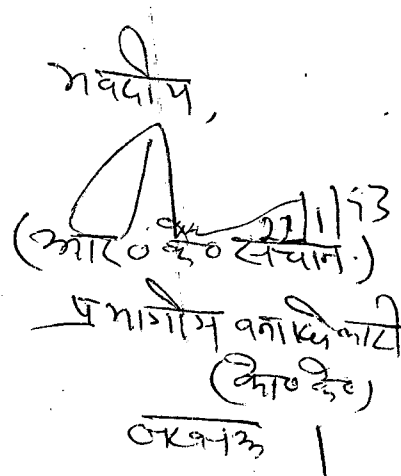 भवदीय,
22/1/93
(आर० के० सचान.)
प्रभागीय वनाधिकारी
(का० के०)
लखनऊ।